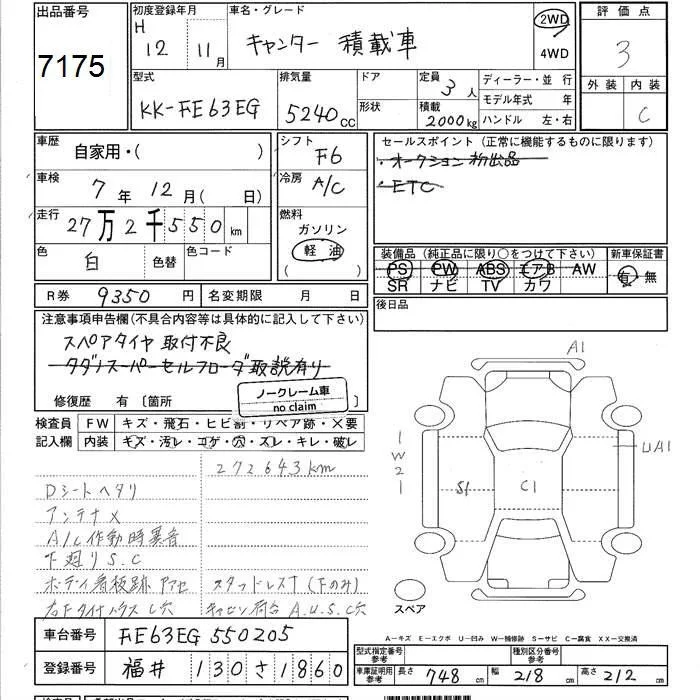 出品番号 初度登録年月 車名・グレード 2WD 評価点
7175 H 12 11月 キャンター 積載車 4WD 3
型式 排気量 ドア 定員 3人 ディーラー・並行 外装 内装
KK-FE63EG 5240CC 形状 積載 2000kg モデル年式 年 C
ハンドル 左・右
車歴 自家用・( ) シフト F6 セールスポイント (正常に機能するものに限ります)
・オークション初出品
車検 7年 12月 (日) 冷房 A/C ・ETC
走行 27万2千550km 燃料 ガソリン
色 白 色替 色コード 軽油 装備品 (純正品に限り○をつけて下さい) 新車保証書
( ) PS PW ABS エアB AW 有 無
SR ナビ TV カワ
R券 9350円 名変期限 月 日 後日品
注意事項申告欄(不具合内容等は具体的に記入して下さい)
スペアタイヤ取付不良
タダノスーパーセルフローダ取説有り
修復歴 有 〔箇所
ノークレーム車
no claim
検査員 FW キズ・飛石・ヒビ割・リペア跡・×要
記入欄 内装 キズ・汚レ・コゲ・穴・スレ・キレ・破レ
A1
1
W
2
1
UA1
S1
C1
272643km
Dシートヘタリ
アンテナ×
A/C作動時異音
下廻りS.C
ボディ看板跡 アセ スタッドレスT(下のみ)
右F タイヤハウス C穴 キャビン荷台 A.U.S.C穴
スペア
A-キズ E-エクボ U-凹み W-補修跡 S-サビ C-腐食 XX-交換済
車台番号 FE63EG 550205
登録番号 福井 130さ1860
型式指定番号 参考 種別区分番号 参考
車庫証明用 参考 長さ 748cm 幅 218cm 高さ 212cm